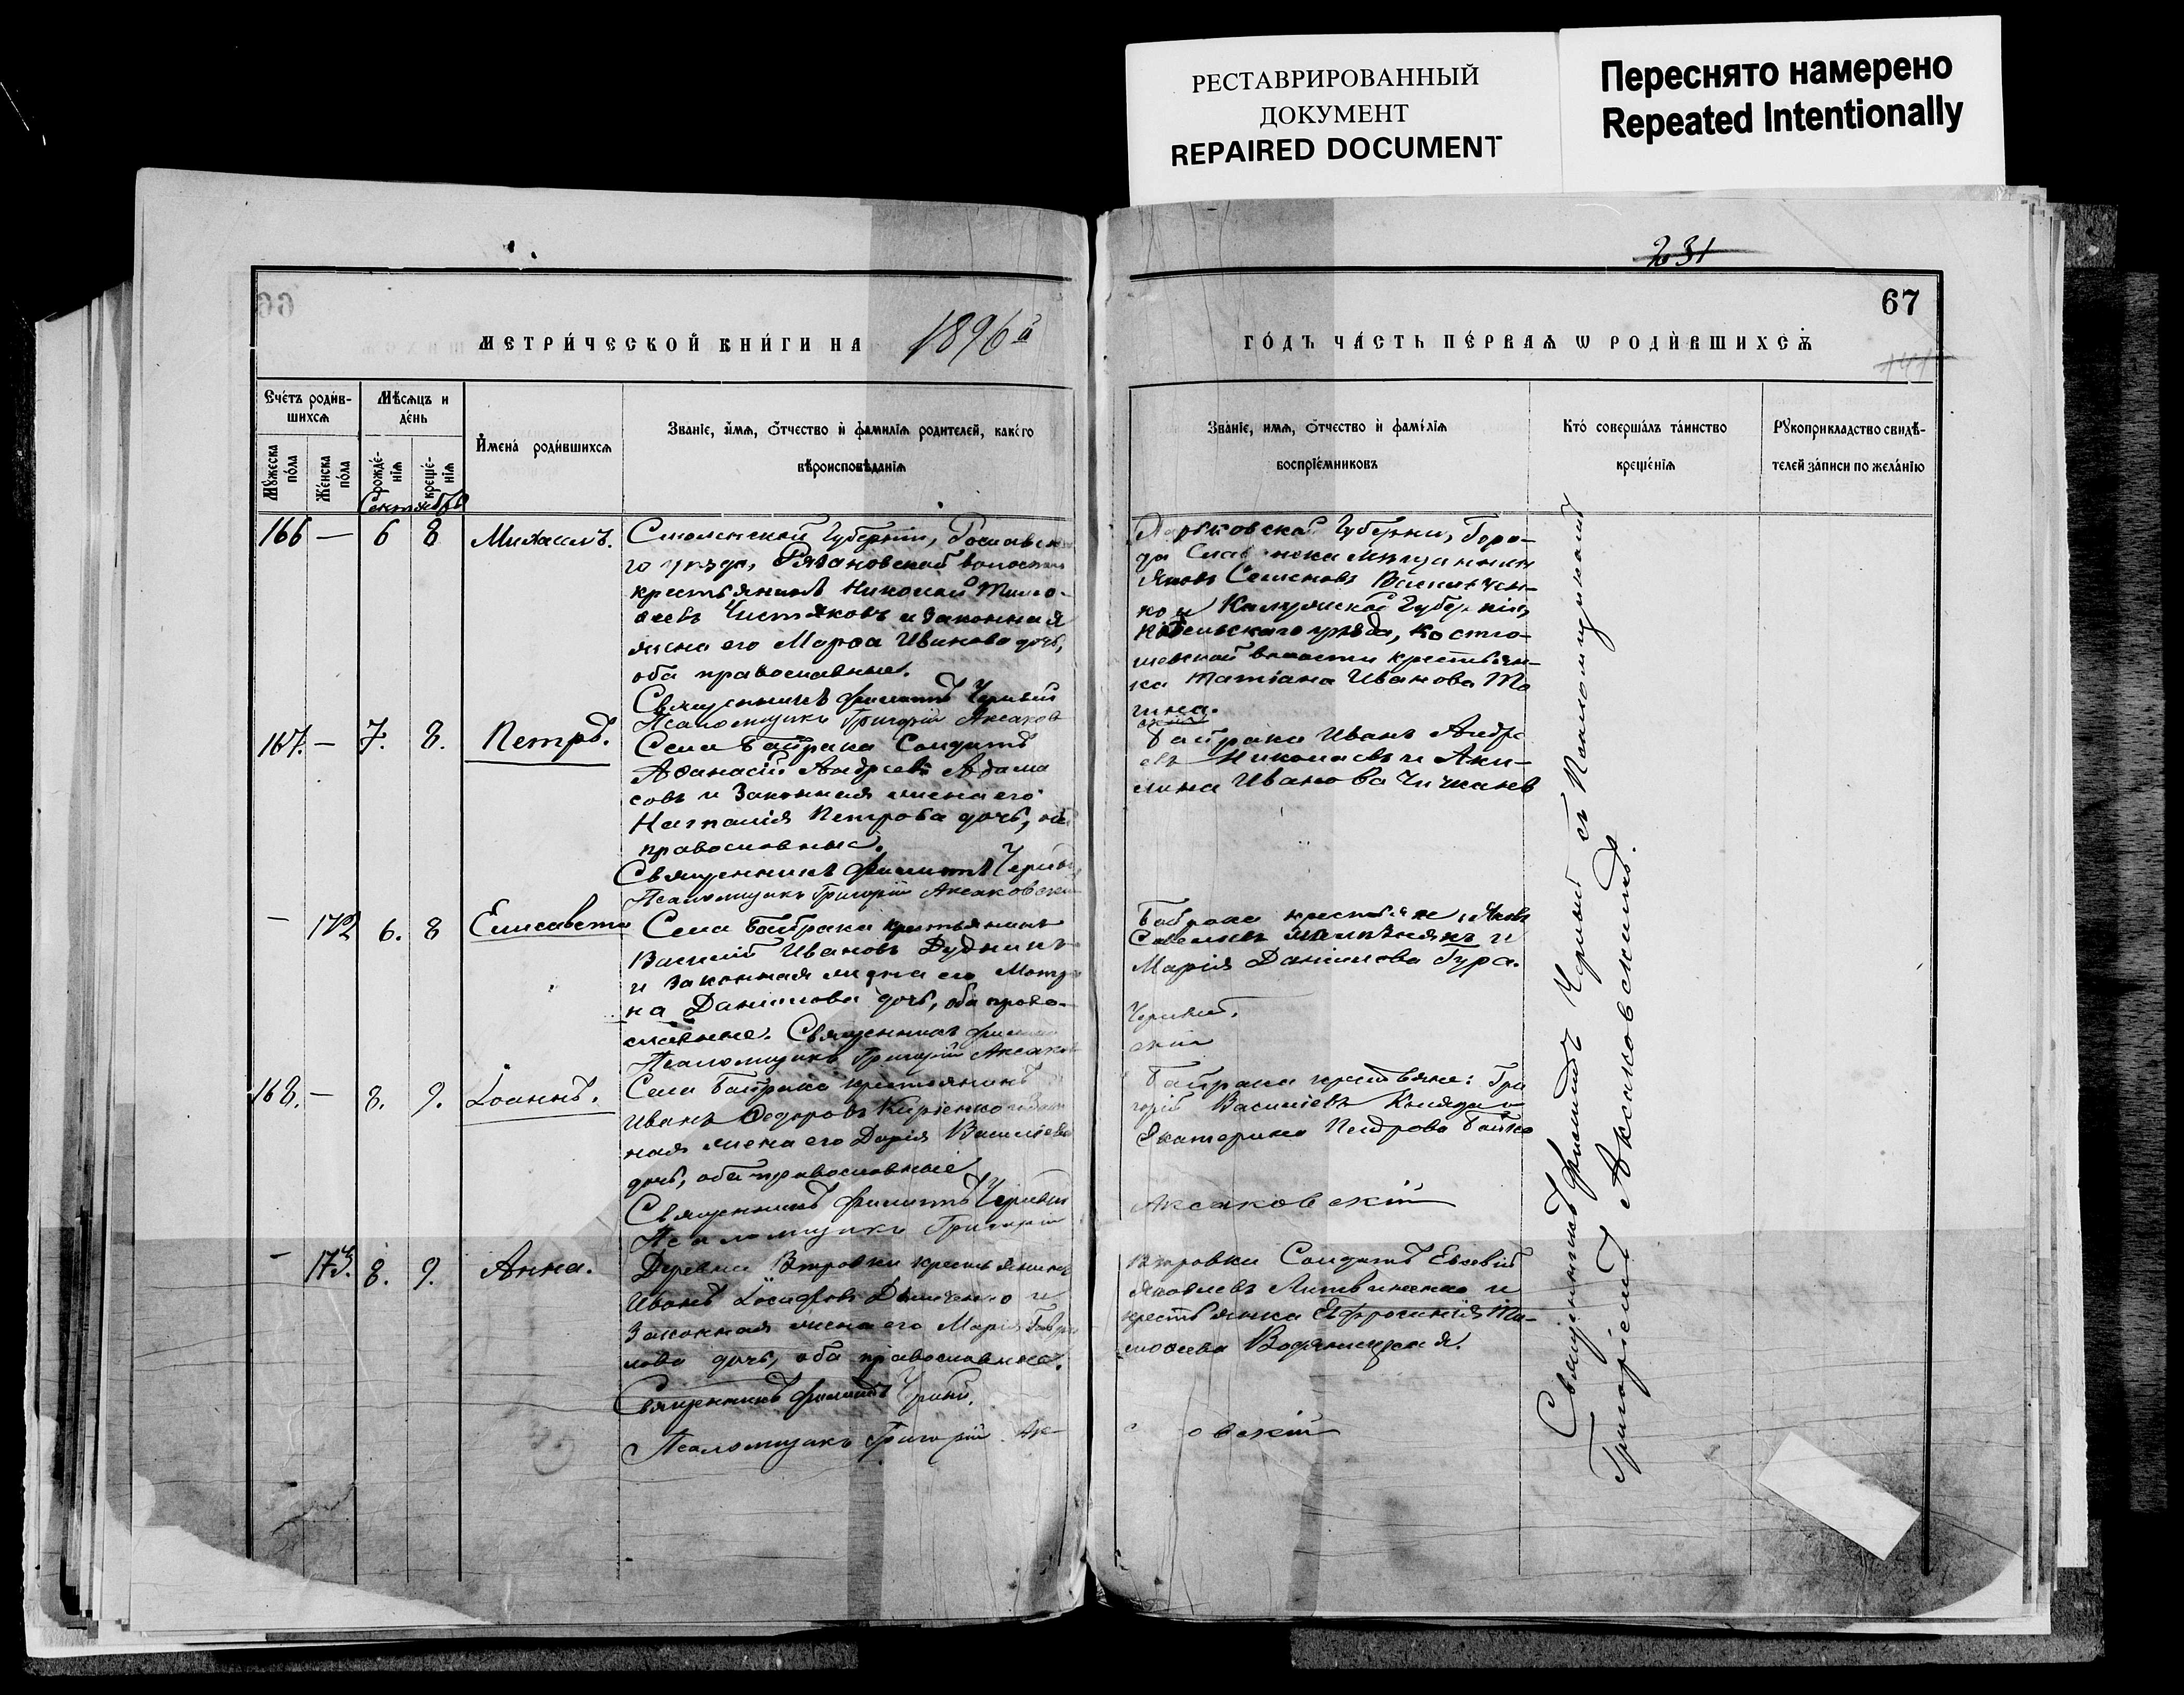 РЕСТАВРИРОВАННЫЙ
ДОКУМЕНТ
REPAIRED DOCUMENT
Переснято намерено
Repeated Intentionally
231
67
МЕТРИ́ЧЕСКОЙ КНИ́ГИ НА 1896й
ГО́ДЪ ЧА́СТЬ ПЕ́РВАѦ Ѡ РОДИ́ВШИХСѦ
Сче́тъ роди́в-
шихсѧ
Мꙋ́жеска по́ла
Же́нска по́ла
Мѣ́сѧцъ и де́нь
рожде́-нїѧ
креще́-нїѧ
Сентябрь
Имена́ роди́вшихсѧ
Зва́нїе, и́мѧ, ѻ́тчество и̂ фами́лїѧ родителей, како́го
вѣроисповѣданїѧ
Зва́нїе, имѧ, ѻ́тчество и̂ фамі́лїѧ
воспрїе́мниковъ
Кто́ соверша́лъ та́инство
креще́нїѧ
Рꙋкоприкладство свидѣ́-
телей за́писи по жела́нїю
166 — 6 8 Михаилъ.
Смоленской Губерніи, Рославск
го уѣзда, Рязановской волости
крестьянинъ Николай Тимо-
ѳеевъ Чистяковъ и законная
жена его Марѳа Иванова дочь,
оба православные.
Священникъ Филиппъ Черный
Псаломщикъ Григорій Аксаков
Харьковской Губерніи, Горо-
да Славянска мѣщанинъ
Яковъ Семеновъ
ко и Калужской Губерніи,
уѣзда,
волости крестьян-
ка Татіана Иванова
167. — 7. 8. Петръ.
Села Байрака Солдатъ
Аѳанасій Андреевъ Адама
совъ и Законная жена его
Наталія Петрова дочь, оба
православные.
Священникъ Филиппъ Черный
Псаломщикъ Григорій Аксаковскій
Байрака Иванъ Андре
евъ и Аки-
лина Иванова
— 172 6. 8 Елисавета
Села Байрака крестьянинъ
Василій Ивановъ Дудникъ
и законная жена его Матре
на Данилова дочь, оба право-
славные. Священникъ Филиппъ
Псаломщикъ Григорій Аксаков
Байрака крестьяне: Яковъ
Савельевъ и
Марія Данилова Гура.
Черный.
скій
168. — 8. 9. Іоаннъ.
Села Байрака крестьянинъ
Иванъ Ѳедоровъ Киріенко и закон
ная жена его Дарія Васильева
дочь, оба православные
Священникъ Филиппъ Черный
Псаломщикъ Григорій
Байрака крестьяне: Гри
горій Васильевъ и
Екатерина Петрова
Аксаковскій
— 173. 8. 9. Анна.
Деревни крестьянинъ
Иванъ Іосифовъ и
Законная жена его Марія Гаври
лова дочь, оба православные.
Священникъ Филиппъ Черный.
Псаломщикъ Григорій Ак
Солдатъ Евсевій
Яковлевъ Литвиненко и
крестьянка Ефросинія Ти-
моѳеева
овскій
Священникъ Филиппъ Черный съ Псаломщикомъ
Григоріемъ Аксаковскимъ.